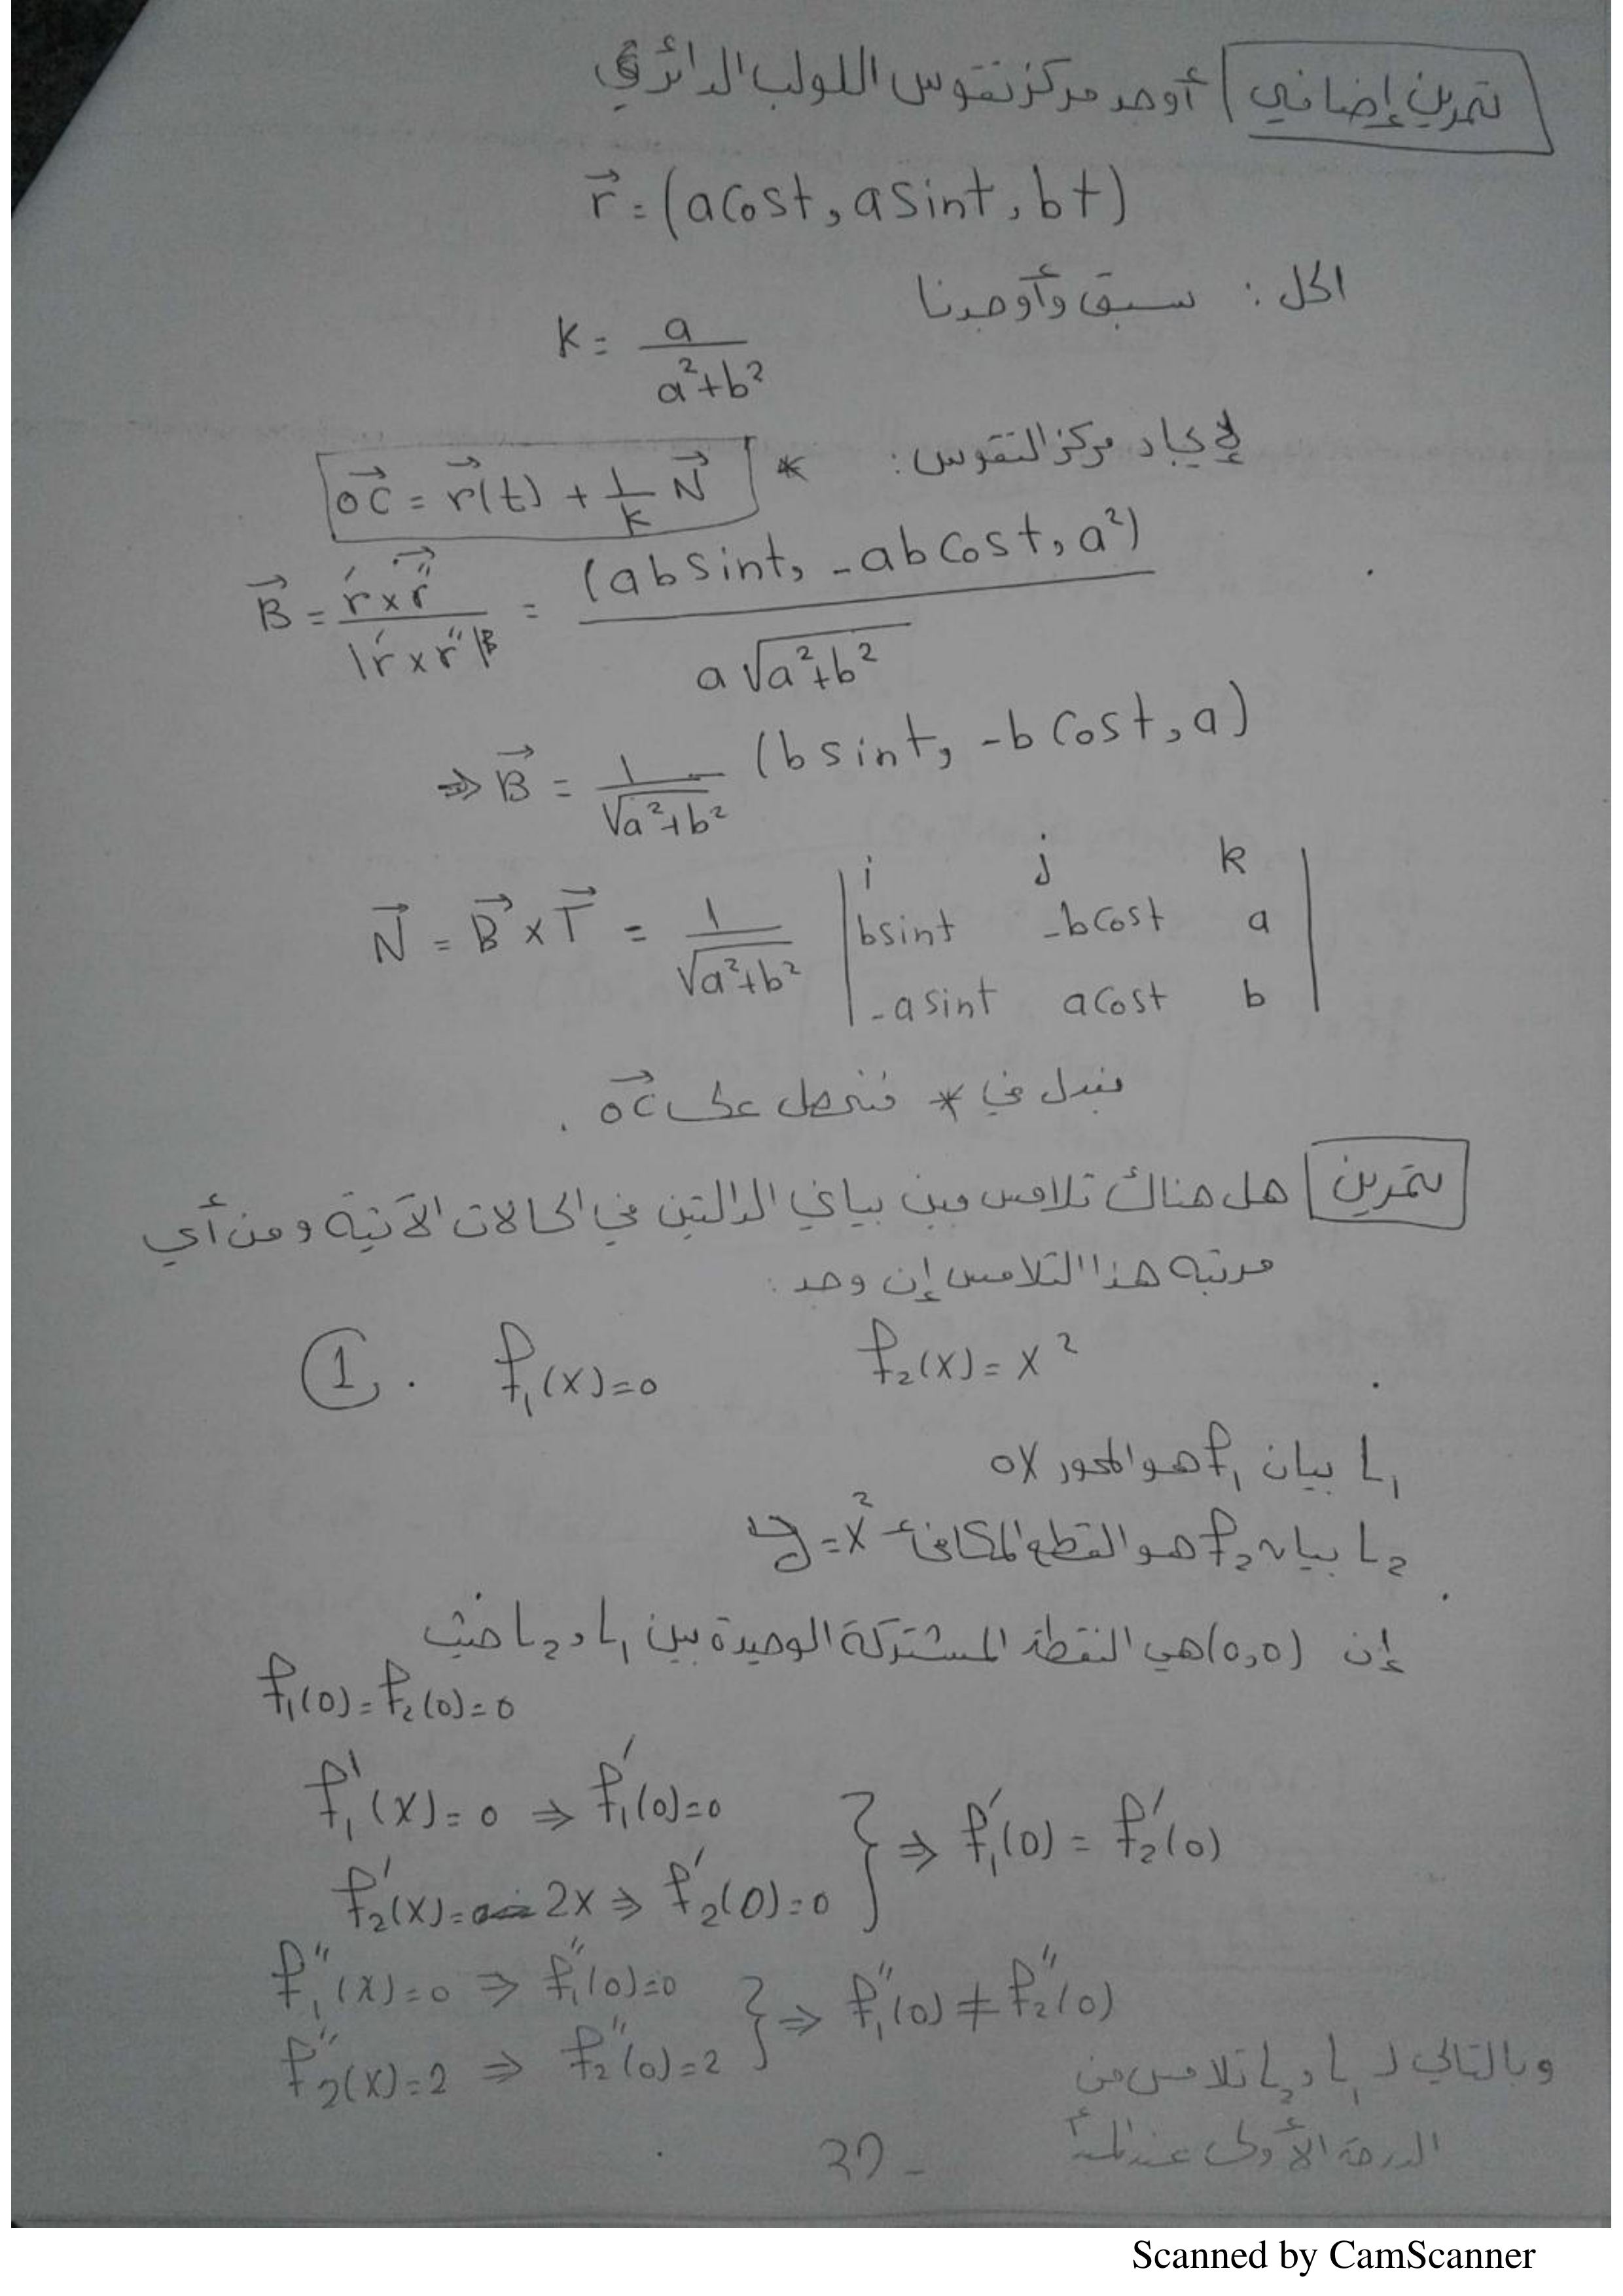 تمرين إضافي أوجد مركز تقوس اللولب الدائري
r⃗ = (a cos t, a sin t, b t)
الحل : سبق وأوجدنا
K = a / (a²+b²)
لإيجاد مركز التقوس :
* OC⃗ = r⃗(t) + 1/k N⃗
B⃗ = r′ × r″ / |r′ × r″| = (ab sin t, -ab cos t, a²) / a√(a²+b²)
⇒ B⃗ = 1/√(a²+b²) (b sin t, -b cos t, a)
N⃗ = B⃗ × T⃗ = 1/√(a²+b²) | i j k
b sin t -b cos t a
-a sin t a cos t b |
نبدل في * فنحصل على OC⃗ .
تمرين هل هناك تلامس بين بياني الدالتين في الحالات الآتية ومن أي
مرتبة هذا التلامس إن وجد :
1. f₁(x)=0 f₂(x)=x²
L₁ بيان f₁ هو المحور ox
L₂ بيان f₂ هو القطع المكافئ y=x²
إن (0,0) هي النقطة المشتركة الوحيدة بين L₁ و L₂ حيث
f₁(0)=f₂(0)=0
f₁′(x)=0 ⇒ f₁′(0)=0
f₂′(x)= 2x ⇒ f₂′(0)=0 } ⇒ f₁′(0) = f₂′(0)
f₁″(x)=0 ⇒ f₁″(0)=0
f₂″(x)=2 ⇒ f₂″(0)=2 } ⇒ f₁″(0) ≠ f₂″(0)
وبالتالي لـ L₁ و L₂ تلامس من
الدرجة الأولى عند المبدأ
Scanned by CamScanner